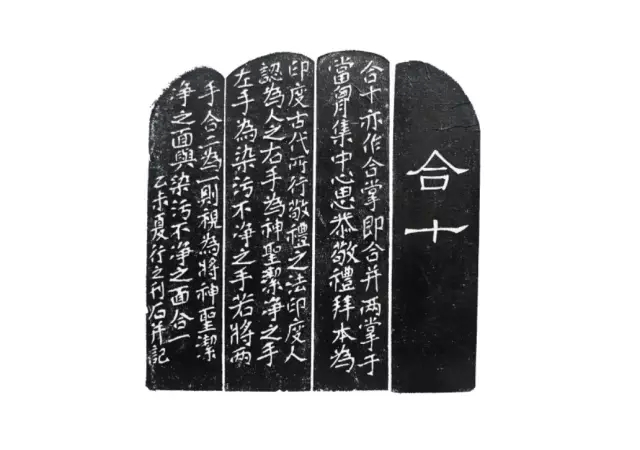 合十
合十亦作合掌即合并两掌于
當胷集中心思恭敬禮拜本為
印度古代所行敬禮之法印度人
認為人之右手為神聖潔净之手
左手為染污不净之手若將两
手合二為一則視為將神聖潔
净之面與染污不净之面合一
乙未夏行之刊石并記